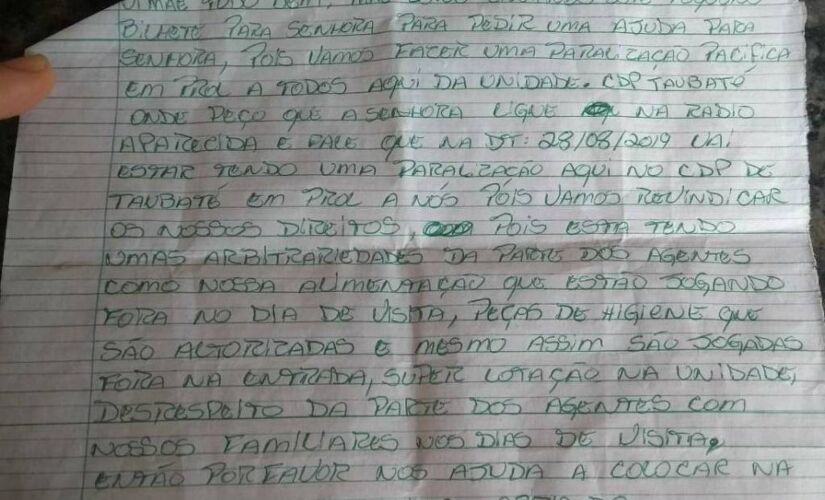 BILHETE PARA SENHORA PARA PEDIR UMA AJUDA PARA
SENHORA, POIS VAMOS FAZER UMA PARALIZAÇÃO PACIFICA
EM PROL A TODOS AQUI DA UNIDADE. CDP TAUBATÉ
ONDE PEÇO QUE A SENHORA LIGUE NA RADIO
APARECIDA E FALE QUE NA DT: 28/08/2019 VAI
ESTAR TENDO UMA PARALIZAÇÃO AQUI NO CDP DE
TAUBATÉ EM PROL A NÓS POIS VAMOS REVINDICAR
OS NOSSOS DIREITOS, POIS ESTA TENDO
UMAS ARBITRARIEDADES DA PARTE DOS AGENTES
COMO NOSSA ALIMENTAÇÃO QUE ESTÃO JOGANDO
FORA NO DIA DE VISITA, PEÇAS DE HIGIENE QUE
SÃO ALTORIZADAS E MESMO ASSIM SÃO JOGADAS
FORA NA ENTRADA, SUPER LOTAÇÃO NA UNIDADE,
DESRESPEITO DA PARTE DOS AGENTES COM
NOSSOS FAMILIARES NOS DIAS DE VISITA,
ENTÃO POR FAVOR NOS AJUDA A COLOCAR NA